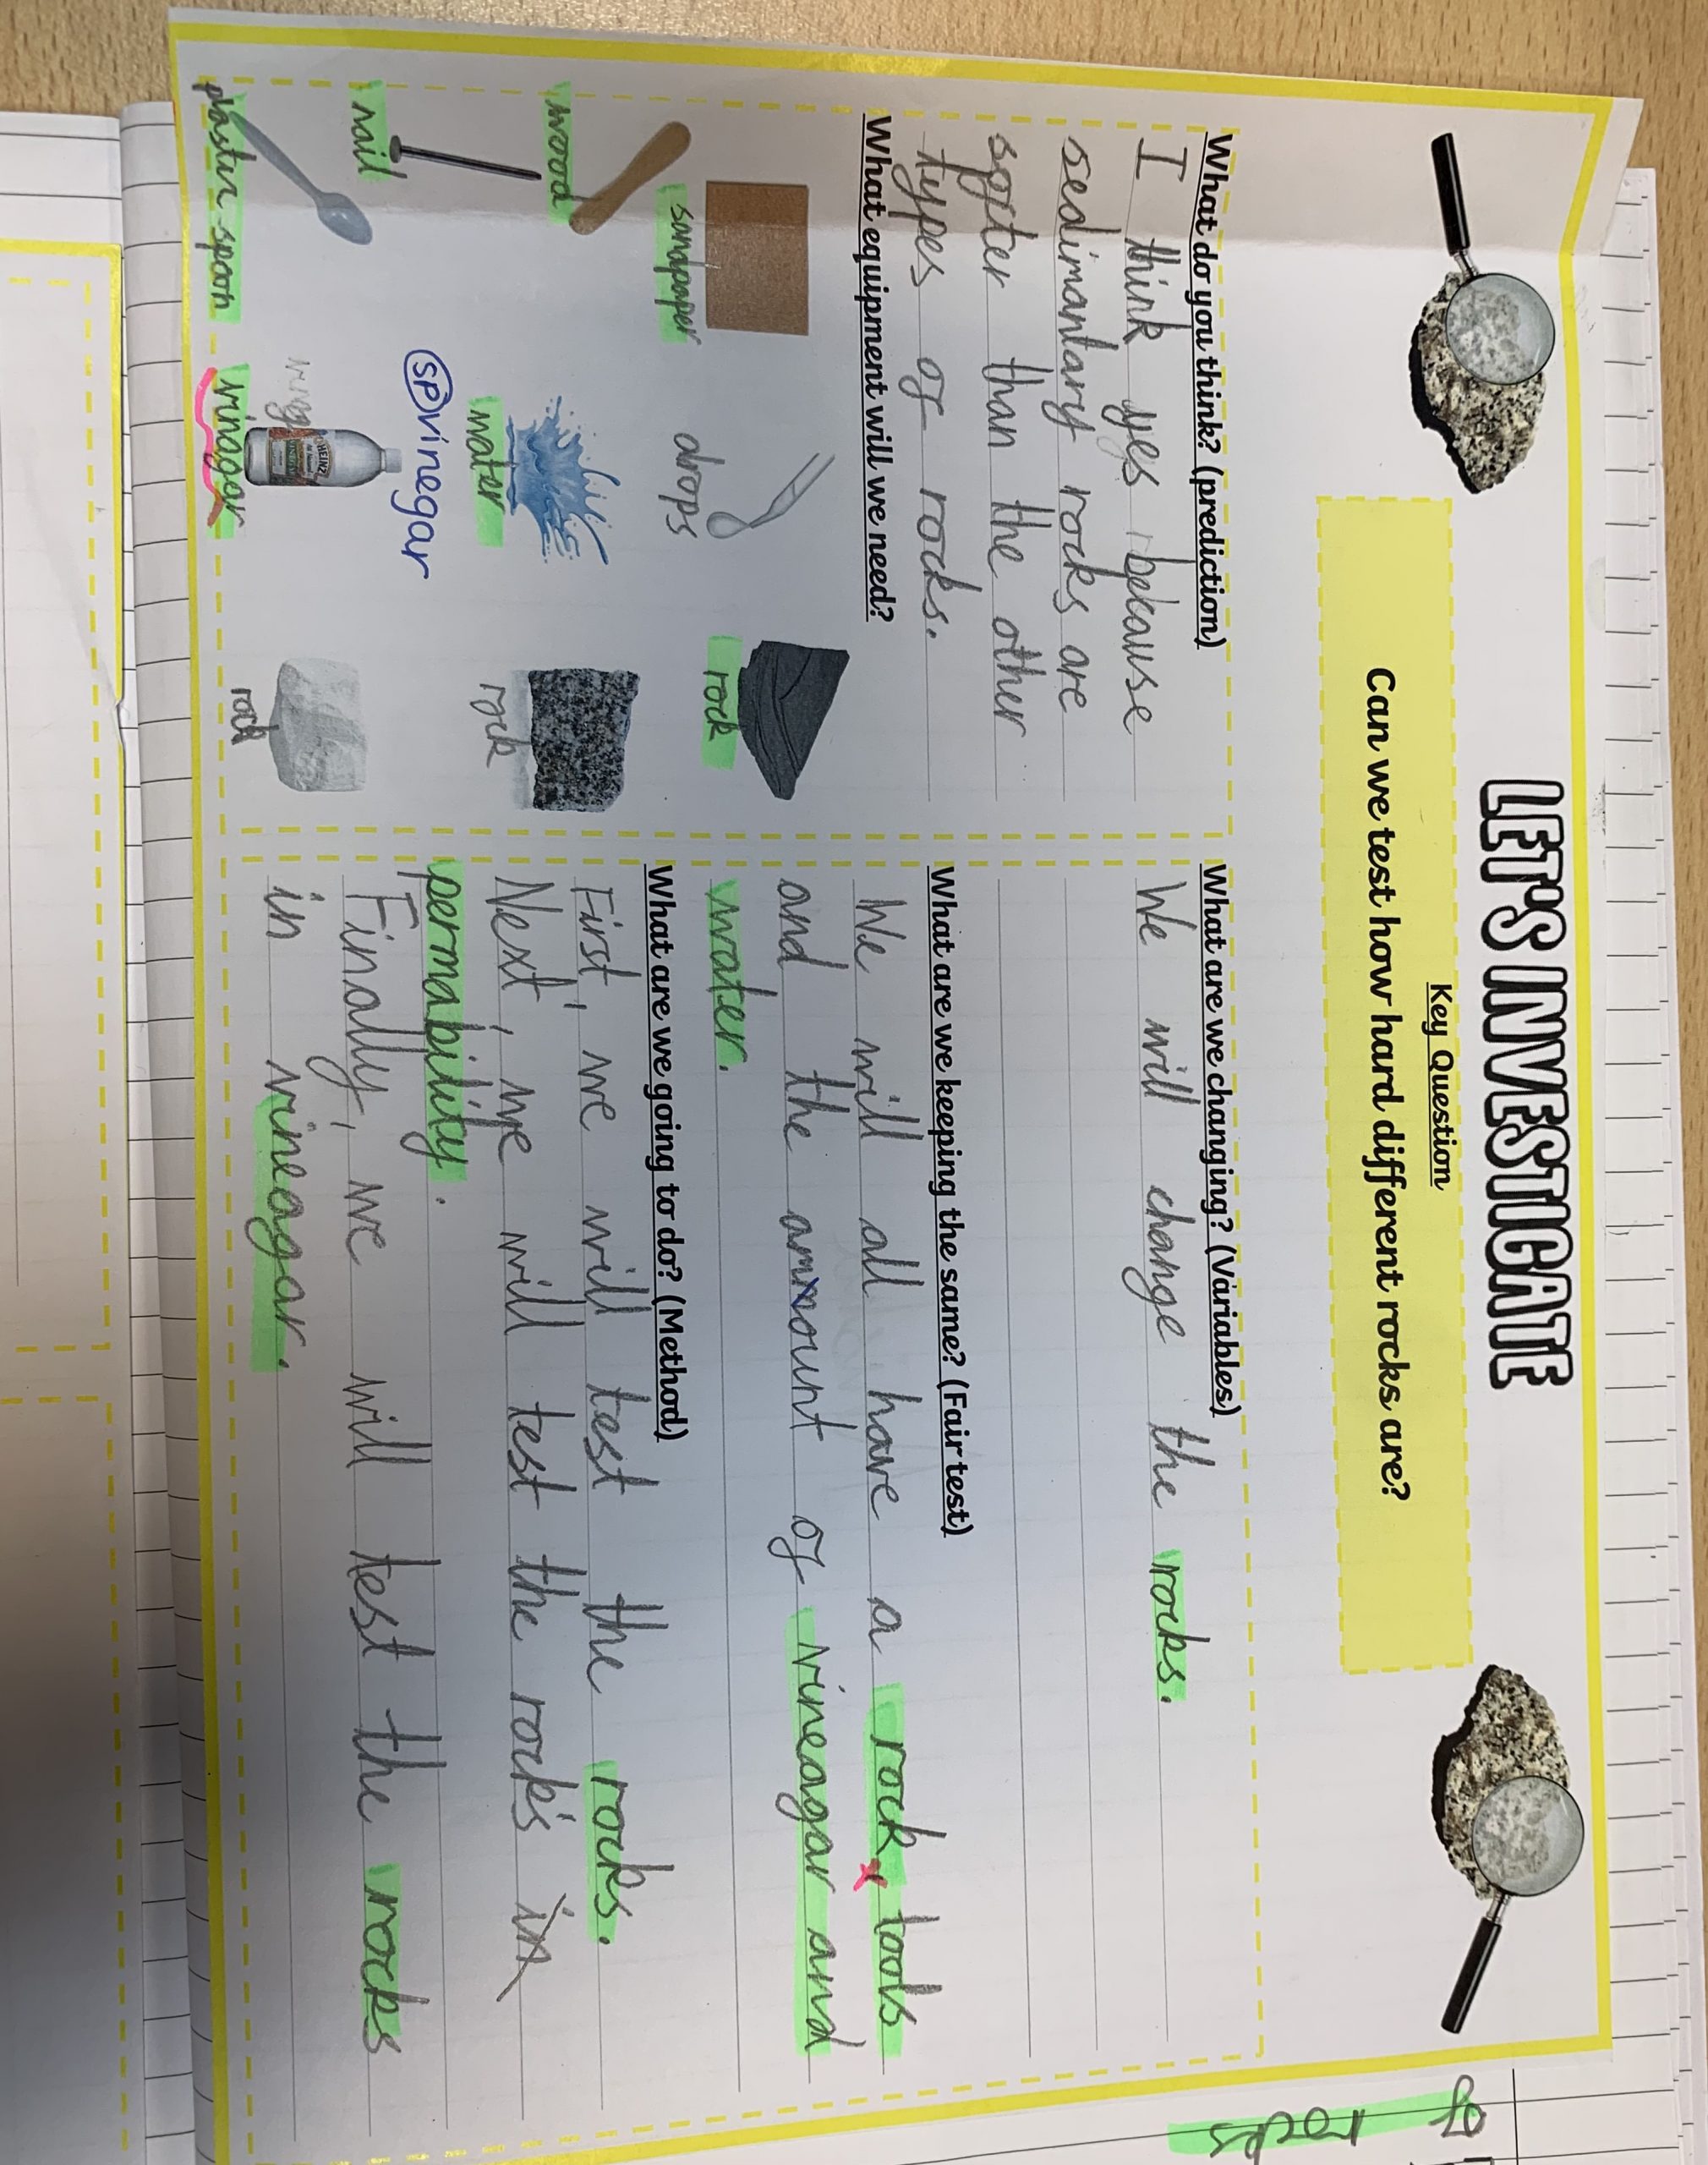 LET'S INVESTIGATE
Key Question
Can we test how hard different rocks are?
What do you think? (prediction)
I think yes because
sedimantary rocks are
softer than the other
types of rocks.
What equipment will we need?
sandpaper
drops
rock
wood
water
rock
nail
sp vinegar
plaster spoon
vinagar
rock
What are we changing? (Variables)
We will change the rocks.
What are we keeping the same? (Fair test)
We will all have a rock, tools
and the ammount of vineagar and
water.
What are we going to do? (Method)
First, we will test the rocks.
Next, we will test the rock's in
permability.
Finally, we will test the rocks
in vineagar.
of rocks
HEINZ